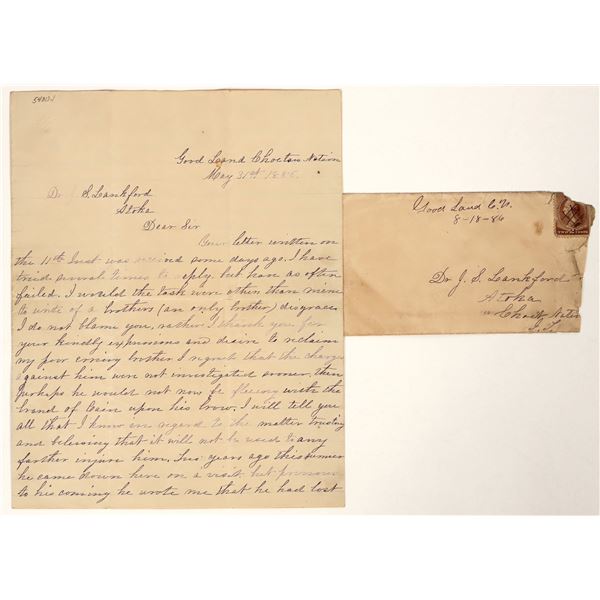 Good Land Choctaw Nation
May 31st 1886.
Dr J. S. Lankford
Atoka
Dear Sir
Your letter written on
the 11th Inst was recived some days ago. I have
tried several times to reply, but have as often
failed. I would the task were others than mine
to write of a brothers (an only brother) disgrace
I do not blame you, rather I thank you for
your kindly expressions and desire to reclaim
my poor erring brother I regret that the charges
against him were not investigated sooner, then
perhaps he would not now be fleeing with the
brand of Cain upon his brow. I will tell you
all that I know in regard to the matter trusting
and believing that it will not be used to any
farther injure him. Two years ago this summer
he came down here on a visit but previous
to his coming he wrote me that he had lost
Good Land C.N.
8-18-86
TWO CENTS
Dr J. S. Lankford
Atoka
Choctaw Nation
I. T.